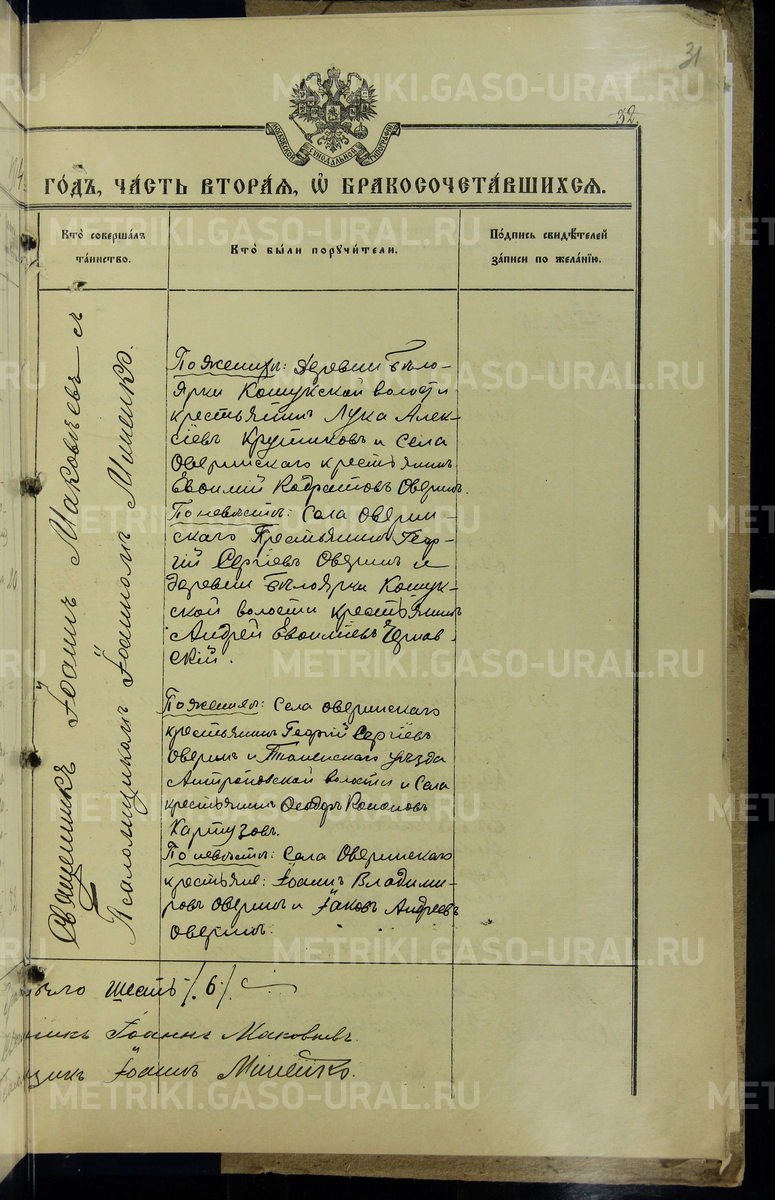 31
32.
МОСКОВСКОЙ СУНОДАЛЬНОЙ ТИПОГРАФІИ
ГО́ДЪ, ЧА́СТЬ ВТОРА́Я, Ѡ БРАКОСОЧЕТА́ВШИХСЯ.
Кто̀ соверша́лъ
та́инство.
Кто̀ бы́ли поручи́тели.
По́дпись свидѣ́телей
за́писи по жела́нію.
Священникъ Іоаннъ Маковѣевъ съ
Псаломщикомъ Іоанномъ Минейко.
По женихѣ: деревни Бѣло-
ярки Кошукской волости
крестьянинъ Лука Алек-
сіевъ Крутиковъ и Села
Оверинскаго крестьянинъ
Евѳимій Кодратовъ Оверинъ.
По невѣстѣ: Села Оверин-
скаго Крестьянинъ Геор-
гій Сергіевъ Оверинъ и
деревни Бѣлоярки Кошук-
ской волости крестьянинъ
Андрей Евѳиміевъ
скій.
По женихѣ: Села Оверинскаго
крестьянинъ Георгій Сергіевъ
Оверинъ и уѣзда
волости и Села
крестьянинъ Ѳеодоръ
Картузовъ.
По невѣстѣ: Села Оверинскаго
крестьяне: Іоаннъ Владими-
ровъ Оверинъ и Іаковъ Андреевъ
Оверинъ.
было шесть /6/.
никъ Іоаннъ Маковѣевъ.
щикъ Іоаннъ Минейко.
METRIKI.GASO-URAL.RU